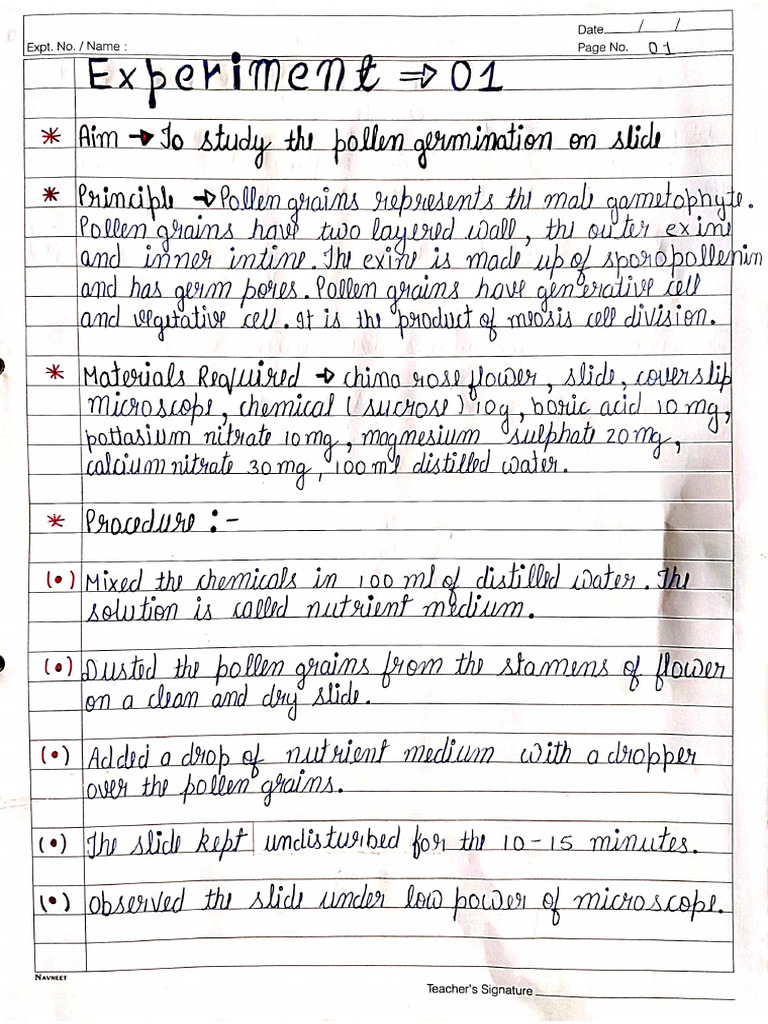 Date / /
Expt. No. / Name :
Page No. 01
Experiment ⇒ 01
* Aim → To study the pollen germination on slide
* Principle → Pollen grains represents the male gametophyte.
Pollen grains have two layered wall, the outer exine
and inner intine. The exine is made up of sporopollenin
and has germ pores. Pollen grains have generative cell
and vegetative cell. It is the product of meosis cell division.
* Materials Required → china rose flower, slide, coverslip
microscope, chemical (sucrose) 10g, boric acid 10 mg,
pottasium nitrate 10 mg, magnesium sulphate 20 mg,
calcium nitrate 30 mg, 100 ml distilled water.
* Procedure :-
(•) Mixed the chemicals in 100 ml of distilled water. The
solution is called nutrient medium.
(•) Dusted the pollen grains from the stamens of flower
on a clean and dry slide.
(•) Added a drop of nutrient medium with a dropper
over the pollen grains.
(•) The slide kept undisturbed for the 10-15 minutes.
(•) Observed the slide under low power of microscope.
NAVNEET
Teacher's Signature